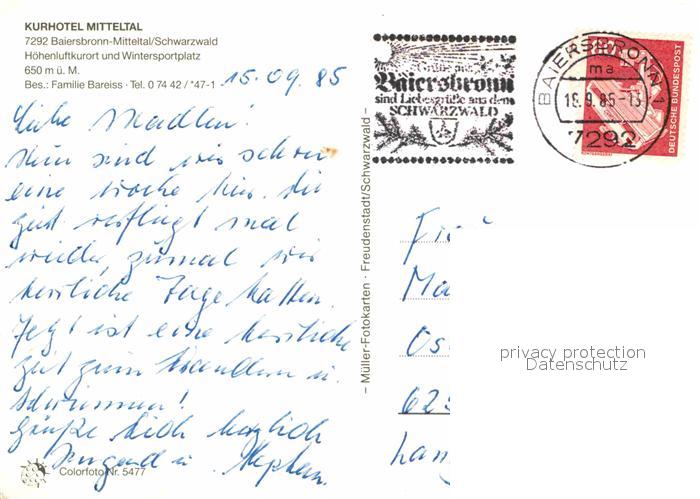 KURHOTEL MITTELTAL
7292 Baiersbronn-Mitteltal/Schwarzwald
Höhenluftkurort und Wintersportplatz
650 m ü. M.
Bes.: Familie Bareiss · Tel. 0 74 42 / *47-1
15.09.85
Liebe Madlen!
Nun sind wir schon
eine Woche hier. Die
Zeit verfliegt mal
wieder, zumal wir
herrliche Tage hatten.
Jetzt ist eine herrliche
Zeit zum Wandern u.
Schwimmen!
Grüße Dich herzlich
Irmgard u. Stephan.
Colorfoto Nr. 5477
– Müller-Fotokarten · Freudenstadt/Schwarzwald –
Baiersbronn
sind Liebesgrüße aus dem
SCHWARZWALD
BAIERSBRONN 1
ma
16.9.85-13
7292
DEUTSCHE BUNDESPOST
Ma
Os
625
privacy protection
Datenschutz